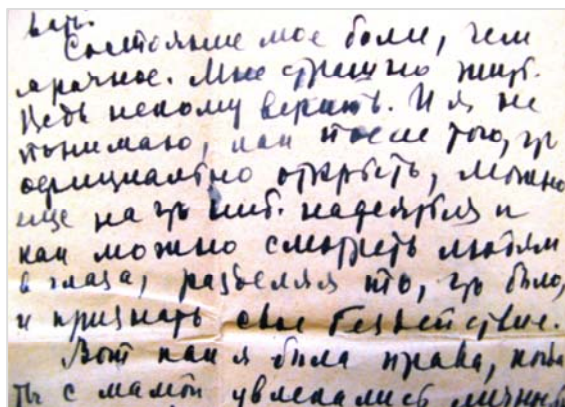 Состояние мое более, чем
мрачное. Мне страшно жить.
Ведь некому верить. И я не
понимаю, как после того, что
официально открыть, можно
еще на что ниб. надеяться и
как можно смотреть людям
в глаза, разделяя то, что было,
и признать свое бездействие.
Вот как я была права, когда
ты с мамой увлекались